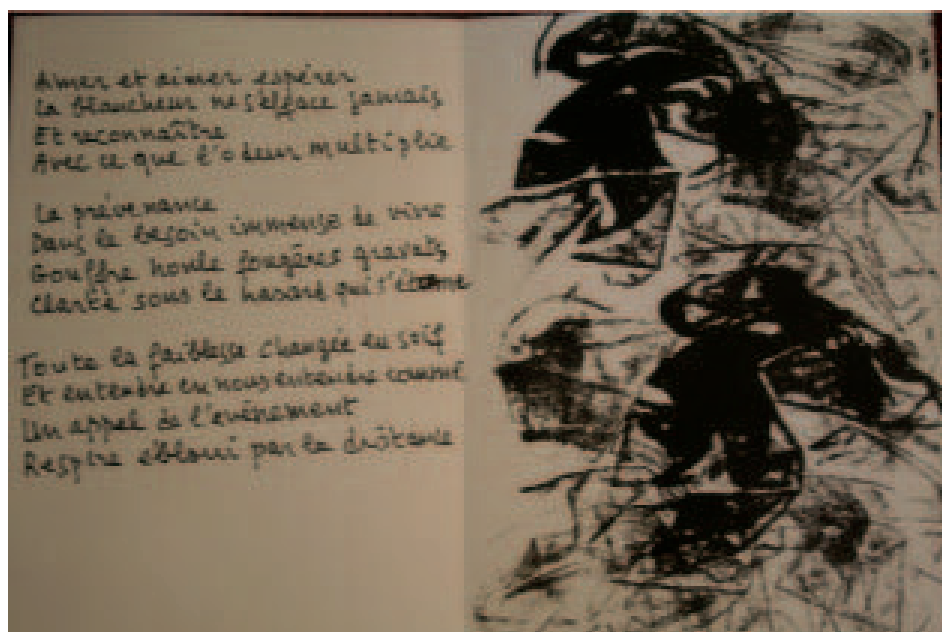 Aimer et aimer espérer
La blancheur ne s'efface jamais
Et reconnaître
Avec ce que l'odeur multiplie
La prévenance
Dans le besoin immense de vivre
Gouffre houle fougères gravats
Clarté sous le hasard qui s'étonne
Toute la faiblesse changée en soif
Et entendre en nous entendre comme
Un appel de l'événement
Respire ébloui par la